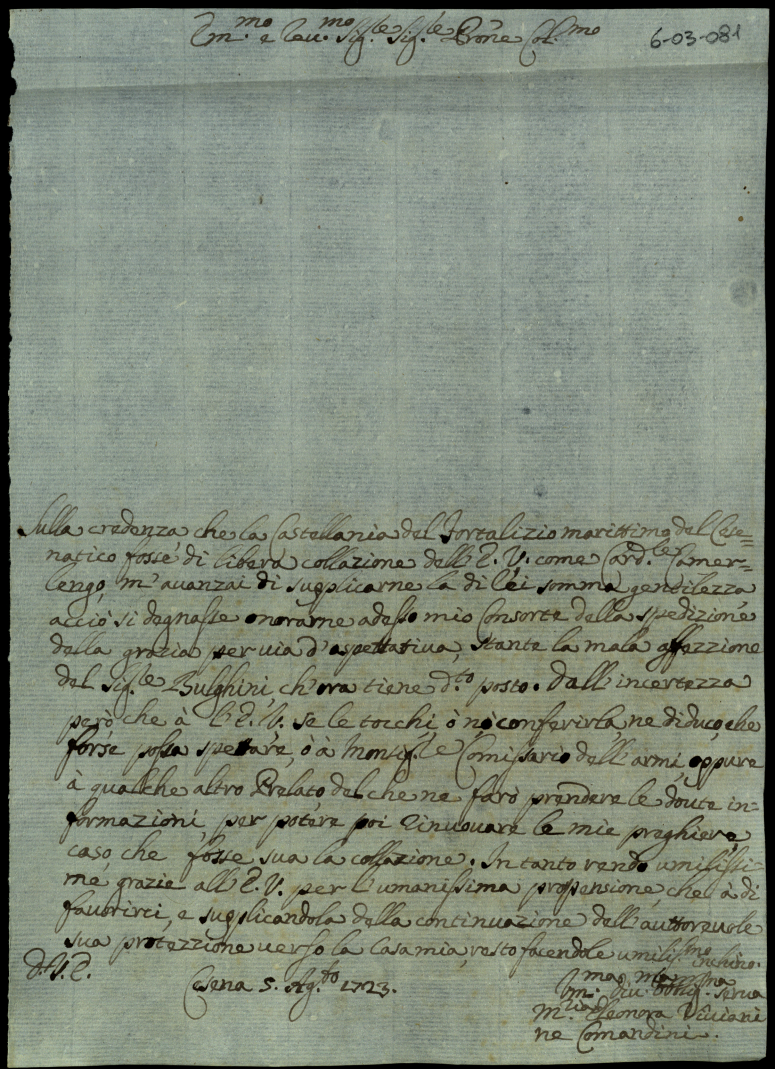 Em.mo e Rev.mo Sig.re Sig.re Prone Col.mo
6-03-081
Sulla credenza che la Castellania del Fortalizio marittimo del Cese=
natico fosse di libera collazione dell'E. V. come Card.le Camer=
lengo, m'auanzai di supplicarne la di lei somma gentilezza
acciò si degnasse onorarne adesso mio Consorte della spedizione
della grazia per uia d'aspettativa, stante la mala affezzione
del sig.re Bulghini, ch'ora tiene d.to posto. Dall'incertezza
però che à l'E. V. se le tocchi, ò nò conferirla, ne diduco, che
forse possa spettare, ò à Monsig.re Comissario dell'armi, oppure
à qualche altro Prelato del che ne farò prendere le doute in=
formazioni, per potere poi rinuouare le mie preghiere,
caso, che fosse sua la collazione. Intanto rendo umilissi=
me grazie all'E. V. per l'umanissima propensione, che à di
favorirci, e supplicandola della continuazione dell'auttoreuole
sua protezzione uerso la Casa mia, resto facendole umiliss.mo inchino.
D. V. E.
Cesena 5. Ag.to 1723.
Um.ma Diu.ma Obblig.ma serua
M.ria Eleonora Viviani
ne Comandini.